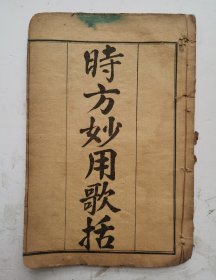 時方妙用歌括